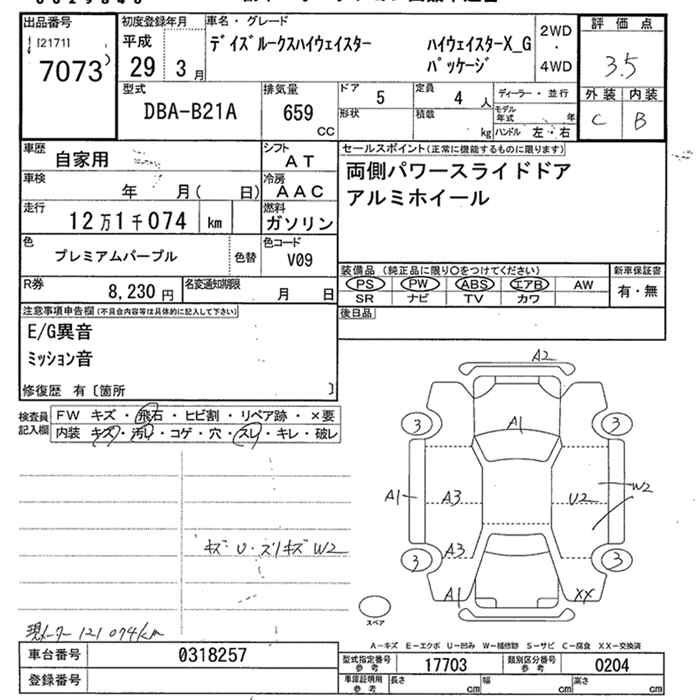 出品番号
[2171]
7073
初度登録年月
平成
29 3月
車名・グレード
デイズルークスハイウェイスター ハイウェイスターX_G
パッケージ
2WD
・
4WD
評価点
3.5
外装 内装
C B
型式
DBA-B21A
排気量
659
CC
ドア
5
定員
4 人
ディーラー・並行
形状
積載
kg
モデル年式 年
ハンドル 左・右
車歴
自家用
シフト
AT
車検
年 月( 日)
冷房
AAC
走行
12万1千074 km
燃料
ガソリン
色
プレミアムパープル
色替
色コード
V09
R券
8,230円
名変通知期限
月 日
セールスポイント(正常に機能するものに限ります)
両側パワースライドドア
アルミホイール
装備品(純正品に限り〇をつけてください)
PS PW ABS エアB AW
SR ナビ TV カワ
新車保証書
有・無
後日品
注意事項申告欄(不具合内容等は具体的に記入して下さい)
E/G異音
ミッション音
修復歴 有〔箇所 〕
検査員
記入欄
FW キズ・飛石・ヒビ割・リペア跡・×要
内装 キズ・汚レ・コゲ・穴・スレ・キレ・破レ
キズ・U・スリキズW2
現メーター121074km
A2
3
A1
3
A1
A3
U2
W2
3
A3
3
A1
XX
スペア
A-キズ E-エクボ U-凹み W-補修跡 S-サビ C-腐食 XX-交換済
車台番号
0318257
登録番号
型式指定番号
参考
17703
類別区分番号
参考
0204
車庫証明用
参考
長さ cm
幅 cm
高さ cm